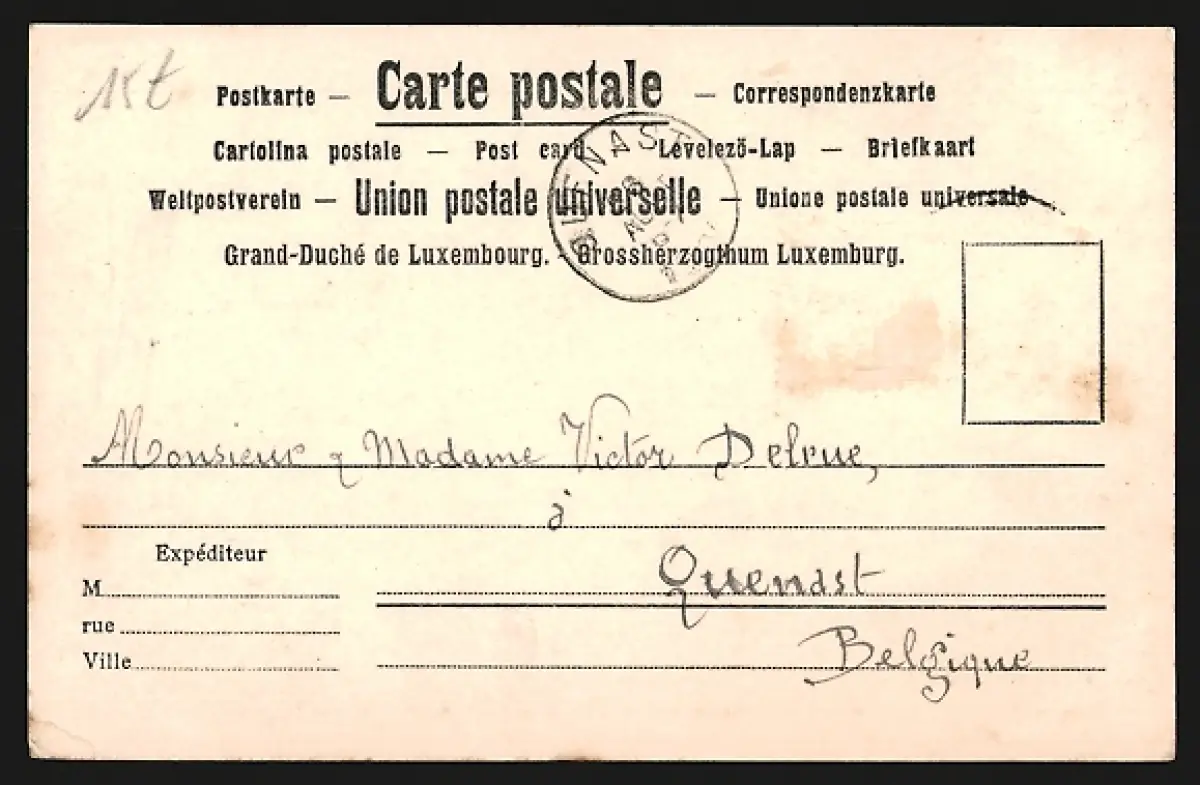 15t
Postkarte — Carte postale — Correspondenzkarte
Cartolina postale — Post card — Levelezö-Lap — Briefkaart
Weltpostverein — Union postale universelle — Unione postale universale
Grand-Duché de Luxembourg. - Grossherzogthum Luxemburg.
QUENAST
Monsieur & Madame Victor Delrue,
à
Expéditeur
Quenast
M
rue
Belgique
Ville